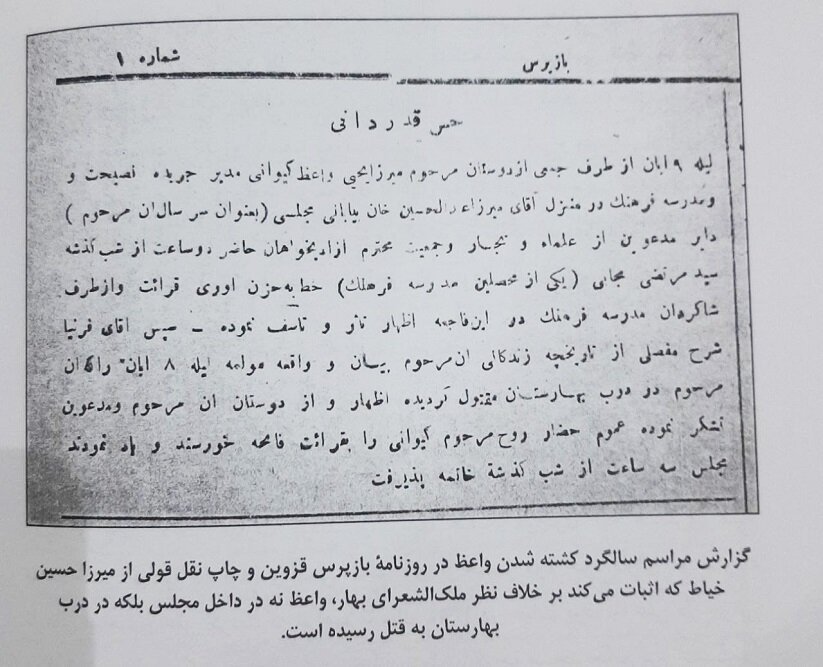 شماره ۱
بازپرس
حس قدردانی
لیله ۹ ابان از طرف جمعی ازدوستان مرحوم میرزایحیی واعظ کیوانی مدیر جریده نصیحت و
ومدرسه فرهنك در منزل آقای میرزاعبدالحسین خان بیابانی مجلسی (بعنوان سر سال ان مرحوم )
دایر مدعوین از علماء و تجار وجمعیت محترم ازادیخواهان حاضر دوساعت از شب گذشه
سید مرتضی مجابی (یکی از محصلین مدرسه فرهنك) خطابه حزن اوری قرائت وازطرف
شاگردان مدرسه فرهنك در این فاجعه اظهار تاثر و تاسف نموده – سپس اقای فرنیا
شرح مفصلی از تاریخچه زندگانی ان مرحوم بیان و واقعه مولمه لیله ۸ ابان راکه ان
مرحوم در درب بهارستان مقتول گردیده اظهار و از دوستان ان مرحوم ومدعوین
تشکر نموده عموم حضار روح مرحوم کیوانی را بقرائت فاتحه خورسند و یاد نمودند
مجلس سه ساعت از شب گذشة خاتمه پذیرفت
گزارش مراسم سالگرد کشته شدن واعظ در روزنامۀ بازپرس قزوین و چاپ نقل قولی از میرزا حسین
خیاط که اثبات می‌کند بر خلاف نظر ملک‌الشعرای بهار، واعظ نه در داخل مجلس بلکه در درب
بهارستان به قتل رسیده است.